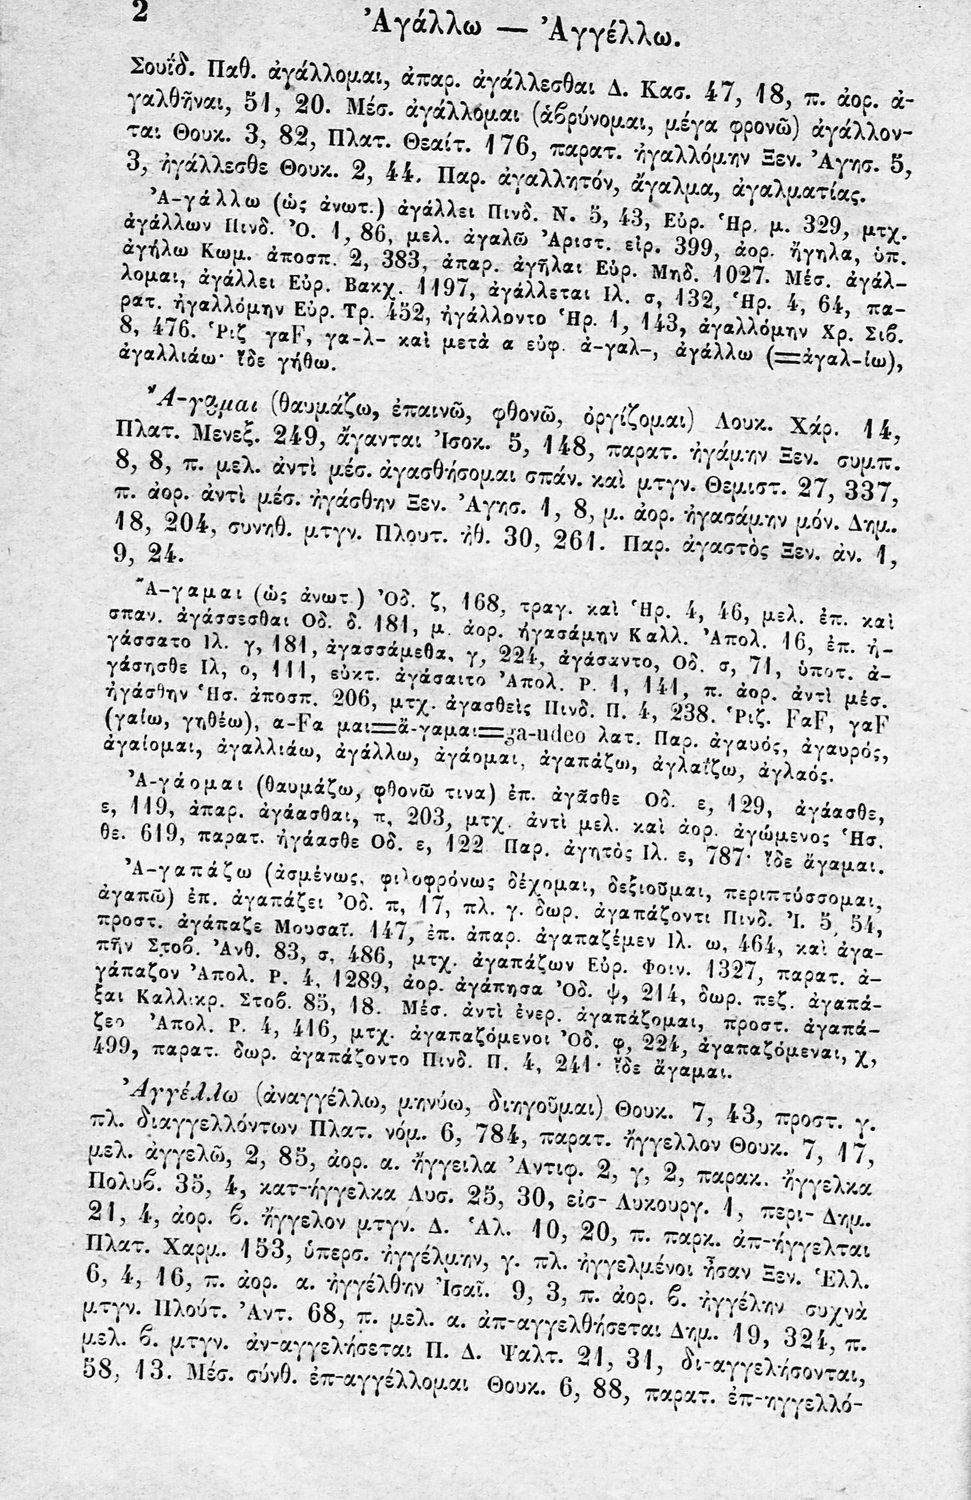 2
Ἀγάλλω — Ἀγγέλλω.
Σουΐδ. Παθ. ἀγάλλομαι, ἀπαρ. ἀγάλλεσθαι Δ. Κασ. 47, 18, π. ἀορ. ἀ-
γαλθῆναι, 51, 20. Μέσ. ἀγάλλομαι (ἁβρύνομαι, μέγα φρονῶ) ἀγάλλον-
ται Θουκ. 3, 82, Πλατ. Θεαίτ. 176, παρατ. ἠγαλλόμην Ξεν. Ἀγησ. 5,
3, ἠγάλλεσθε Θουκ. 2, 44. Παρ. ἀγαλλητόν, ἄγαλμα, ἀγαλματίας.
Ἀ-γάλλω (ὡς ἀνωτ.) ἀγάλλει Πινδ. Ν. 5, 43, Εὐρ. Ἡρ. μ. 329, μτχ.
ἀγάλλων Πινδ. Ὀ. 1, 86, μελ. ἀγαλῶ Ἀριστ. εἰρ. 399, ἀορ. ἤγηλα, ὑπ.
ἀγήλω Κωμ. ἀποσπ. 2, 383, ἀπαρ. ἀγῆλαι Εὐρ. Μηδ. 1027. Μέσ. ἀγάλ-
λομαι, ἀγάλλει Εὐρ. Βακχ. 1197, ἀγάλλεται Ιλ. σ, 132, Ἡρ. 4, 64, πα-
ρατ. ἠγαλλόμην Εὐρ. Τρ. 452, ἠγάλλοντο Ἡρ. 1, 143, ἀγαλλόμην Χρ. Σιβ.
8, 476. Ῥιζ γαF, γα-λ- καὶ μετὰ α εὐφ. ἀ-γαλ-, ἀγάλλω (=ἀγαλ-ίω),
ἀγαλλιάω· ἴδε γήθω.
Ἄ-γαμαι (θαυμάζω, ἐπαινῶ, φθονῶ, ὀργίζομαι) Λουκ. Χάρ. 14,
Πλατ. Μενεξ. 249, ἄγανται Ἰσοκ. 5, 148, παρατ. ἠγάμην Ξεν. συμπ.
8, 8, π. μελ. ἀντὶ μέσ. ἀγασθήσομαι σπάν. καὶ μτγν. Θεμιστ. 27, 337,
π. ἀορ. ἀντὶ μέσ. ἠγάσθην Ξεν. Ἀγησ. 1, 8, μ. ἀορ. ἠγασάμην μόν. Δημ.
18, 204, συνηθ. μτγν. Πλουτ. ἠθ. 30, 261. Παρ. ἀγαστὸς Ξεν. ἀν. 1,
9, 24.
Ἄ-γαμαι (ὡς ἀνωτ.) Ὀδ. ζ, 168, τραγ. καὶ Ἡρ. 4, 46, μελ. ἐπ. καὶ
σπαν. ἀγάσσεσθαι Οδ. δ. 181, μ. ἀορ. ἠγασάμην Καλλ. Ἀπολ. 16, ἐπ. ἠ-
γάσσατο Ιλ. γ, 181, ἀγασσάμεθα, γ, 224, ἀγάσαντο, Οδ. σ, 71, ὑποτ. ἀ-
γάσησθε Ιλ, ο, 111, εὐκτ. ἀγάσαιτο Ἀπολ. Ρ. 1, 141, π. ἀορ. ἀντὶ μέσ.
ἠγάσθην Ἡσ. ἀποσπ. 206, μτχ. ἀγασθεὶς Πινδ. Π. 4, 238. Ῥιζ. FαF, γαF
(γαίω, γηθέω), α-Fα μαι=ἄ-γαμαι=ga-udeo λατ. Παρ. ἀγαυός, ἀγαυρός,
ἀγαίομαι, ἀγαλλιάω, ἀγάλλω, ἀγάομαι, ἀγαπάζω, ἀγλαΐζω, ἀγλαός.
Ἀ-γάομαι (θαυμάζω, φθονῶ τινα) ἐπ. ἀγᾶσθε Οδ. ε, 129, ἀγάασθε,
ε, 119, ἀπαρ. ἀγάασθαι, π, 203, μτχ. ἀντὶ μελ. καὶ ἀορ. ἀγώμενος Ἡσ.
θε. 619, παρατ. ἠγάασθε Οδ. ε, 122 Παρ. ἀγητὸς Ιλ. ε, 787· ἴδε ἄγαμαι.
Ἀ-γαπάζω (ἀσμένως, φιλοφρόνως δέχομαι, δεξιοῦμαι, περιπτύσσομαι,
ἀγαπῶ) ἐπ. ἀγαπάζει Ὀδ. π, 17, πλ. γ. δωρ. ἀγαπάζοντι Πινδ. Ἰ. 5, 54,
προστ. ἀγάπαζε Μουσαῖ. 147, ἐπ. ἀπαρ. ἀγαπαζέμεν Ιλ. ω, 464, καὶ ἀγα-
πῆν Στοβ. Ἀνθ. 83, σ, 486, μτχ. ἀγαπάζων Εὐρ. Φοιν. 1327, παρατ. ἀ-
γάπαζον Ἀπολ. Ρ. 4, 1289, ἀορ. ἀγάπησα Ὀδ. ψ, 214, δωρ. πεζ. ἀγαπά-
ξαι Καλλικρ. Στοβ. 85, 18. Μέσ. ἀντὶ ἐνερ. ἀγαπάζομαι, προστ. ἀγαπά-
ζεο Ἀπολ. Ρ. 4, 416, μτχ. ἀγαπαζόμενοι Ὀδ. φ, 224, ἀγαπαζόμεναι, χ,
499, παρατ. δωρ. ἀγαπάζοντο Πινδ. Π. 4, 241· ἴδε ἄγαμαι.
Ἀγγέλλω (ἀναγγέλλω, μηνύω, διηγοῦμαι) Θουκ. 7, 43, προστ. γ.
πλ. διαγγελλόντων Πλατ. νόμ. 6, 784, παρατ. ἤγγελλον Θουκ. 7, 17,
μελ. ἀγγελῶ, 2, 85, ἀορ. α. ἤγγειλα Ἀντιφ. 2, γ, 2, παρακ. ἤγγελκα
Πολυβ. 35, 4, κατ-ήγγελκα Λυσ. 25, 30, εἰσ- Λυκουργ. 1, περι- Δημ.
21, 4, ἀορ. β. ἤγγελον μτγν. Δ. Ἁλ. 10, 20, π. παρκ. ἀπ-ήγγελται
Πλατ. Χαρμ. 153, ὑπερσ. ἠγγέλμην, γ. πλ. ἠγγελμένοι ἦσαν Ξεν. Ἑλλ.
6, 4, 16, π. ἀορ. α. ἠγγέλθην Ἰσαῖ. 9, 3, π. ἀορ. β. ἠγγέλην συχνὰ
μτγν. Πλούτ. Ἀντ. 68, π. μελ. α. ἀπ-αγγελθήσεται Δημ. 19, 324, π.
μελ. β. μτγν. ἀν-αγγελήσεται Π. Δ. Ψαλτ. 21, 31, δι-αγγελήσονται,
58, 13. Μέσ. σύνθ. ἐπ-αγγέλλομαι Θουκ. 6, 88, παρατ. ἐπ-ηγγελλό-